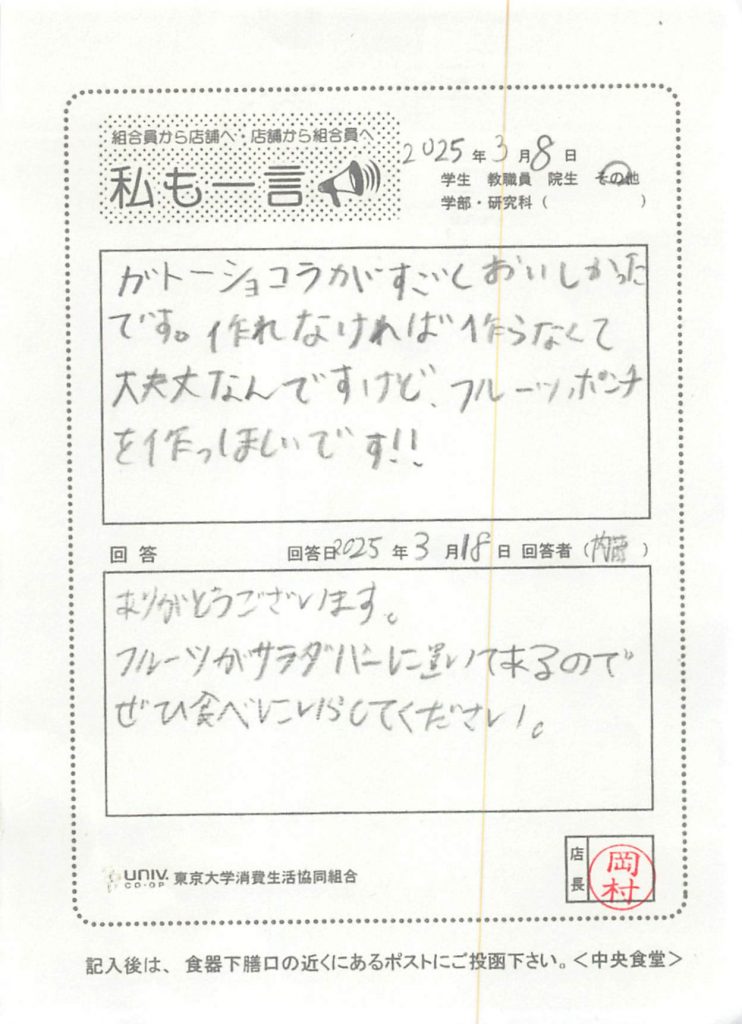 組合員から店舗へ・店舗から組合員へ
私も一言
2025年3月8日
学生 教職員 院生 その他
学部・研究科（ ）
ガトーショコラがすごくおいしかった
です。作れなければ作らなくて
大夫丈なんですけど、フルーツポンチ
を作っほしいです!!
回答 回答日2025年3月18日 回答者（内藤）
ありがとうございます。
フルーツがサラダバーに置いて来るので
ぜひ食べにいらしてください。
UNIV. CO-OP 東京大学消費生活協同組合
店長 岡村
記入後は、食器下膳口の近くにあるポストにご投函下さい。＜中央食堂＞